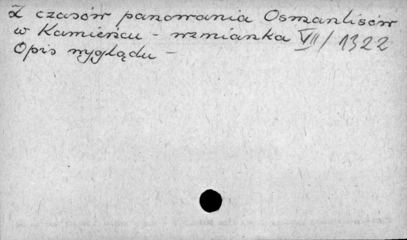 Z czasów panowania Osmanlisów
w Kamieńcu - wzmianka VII/1322
Opis wyglądu -